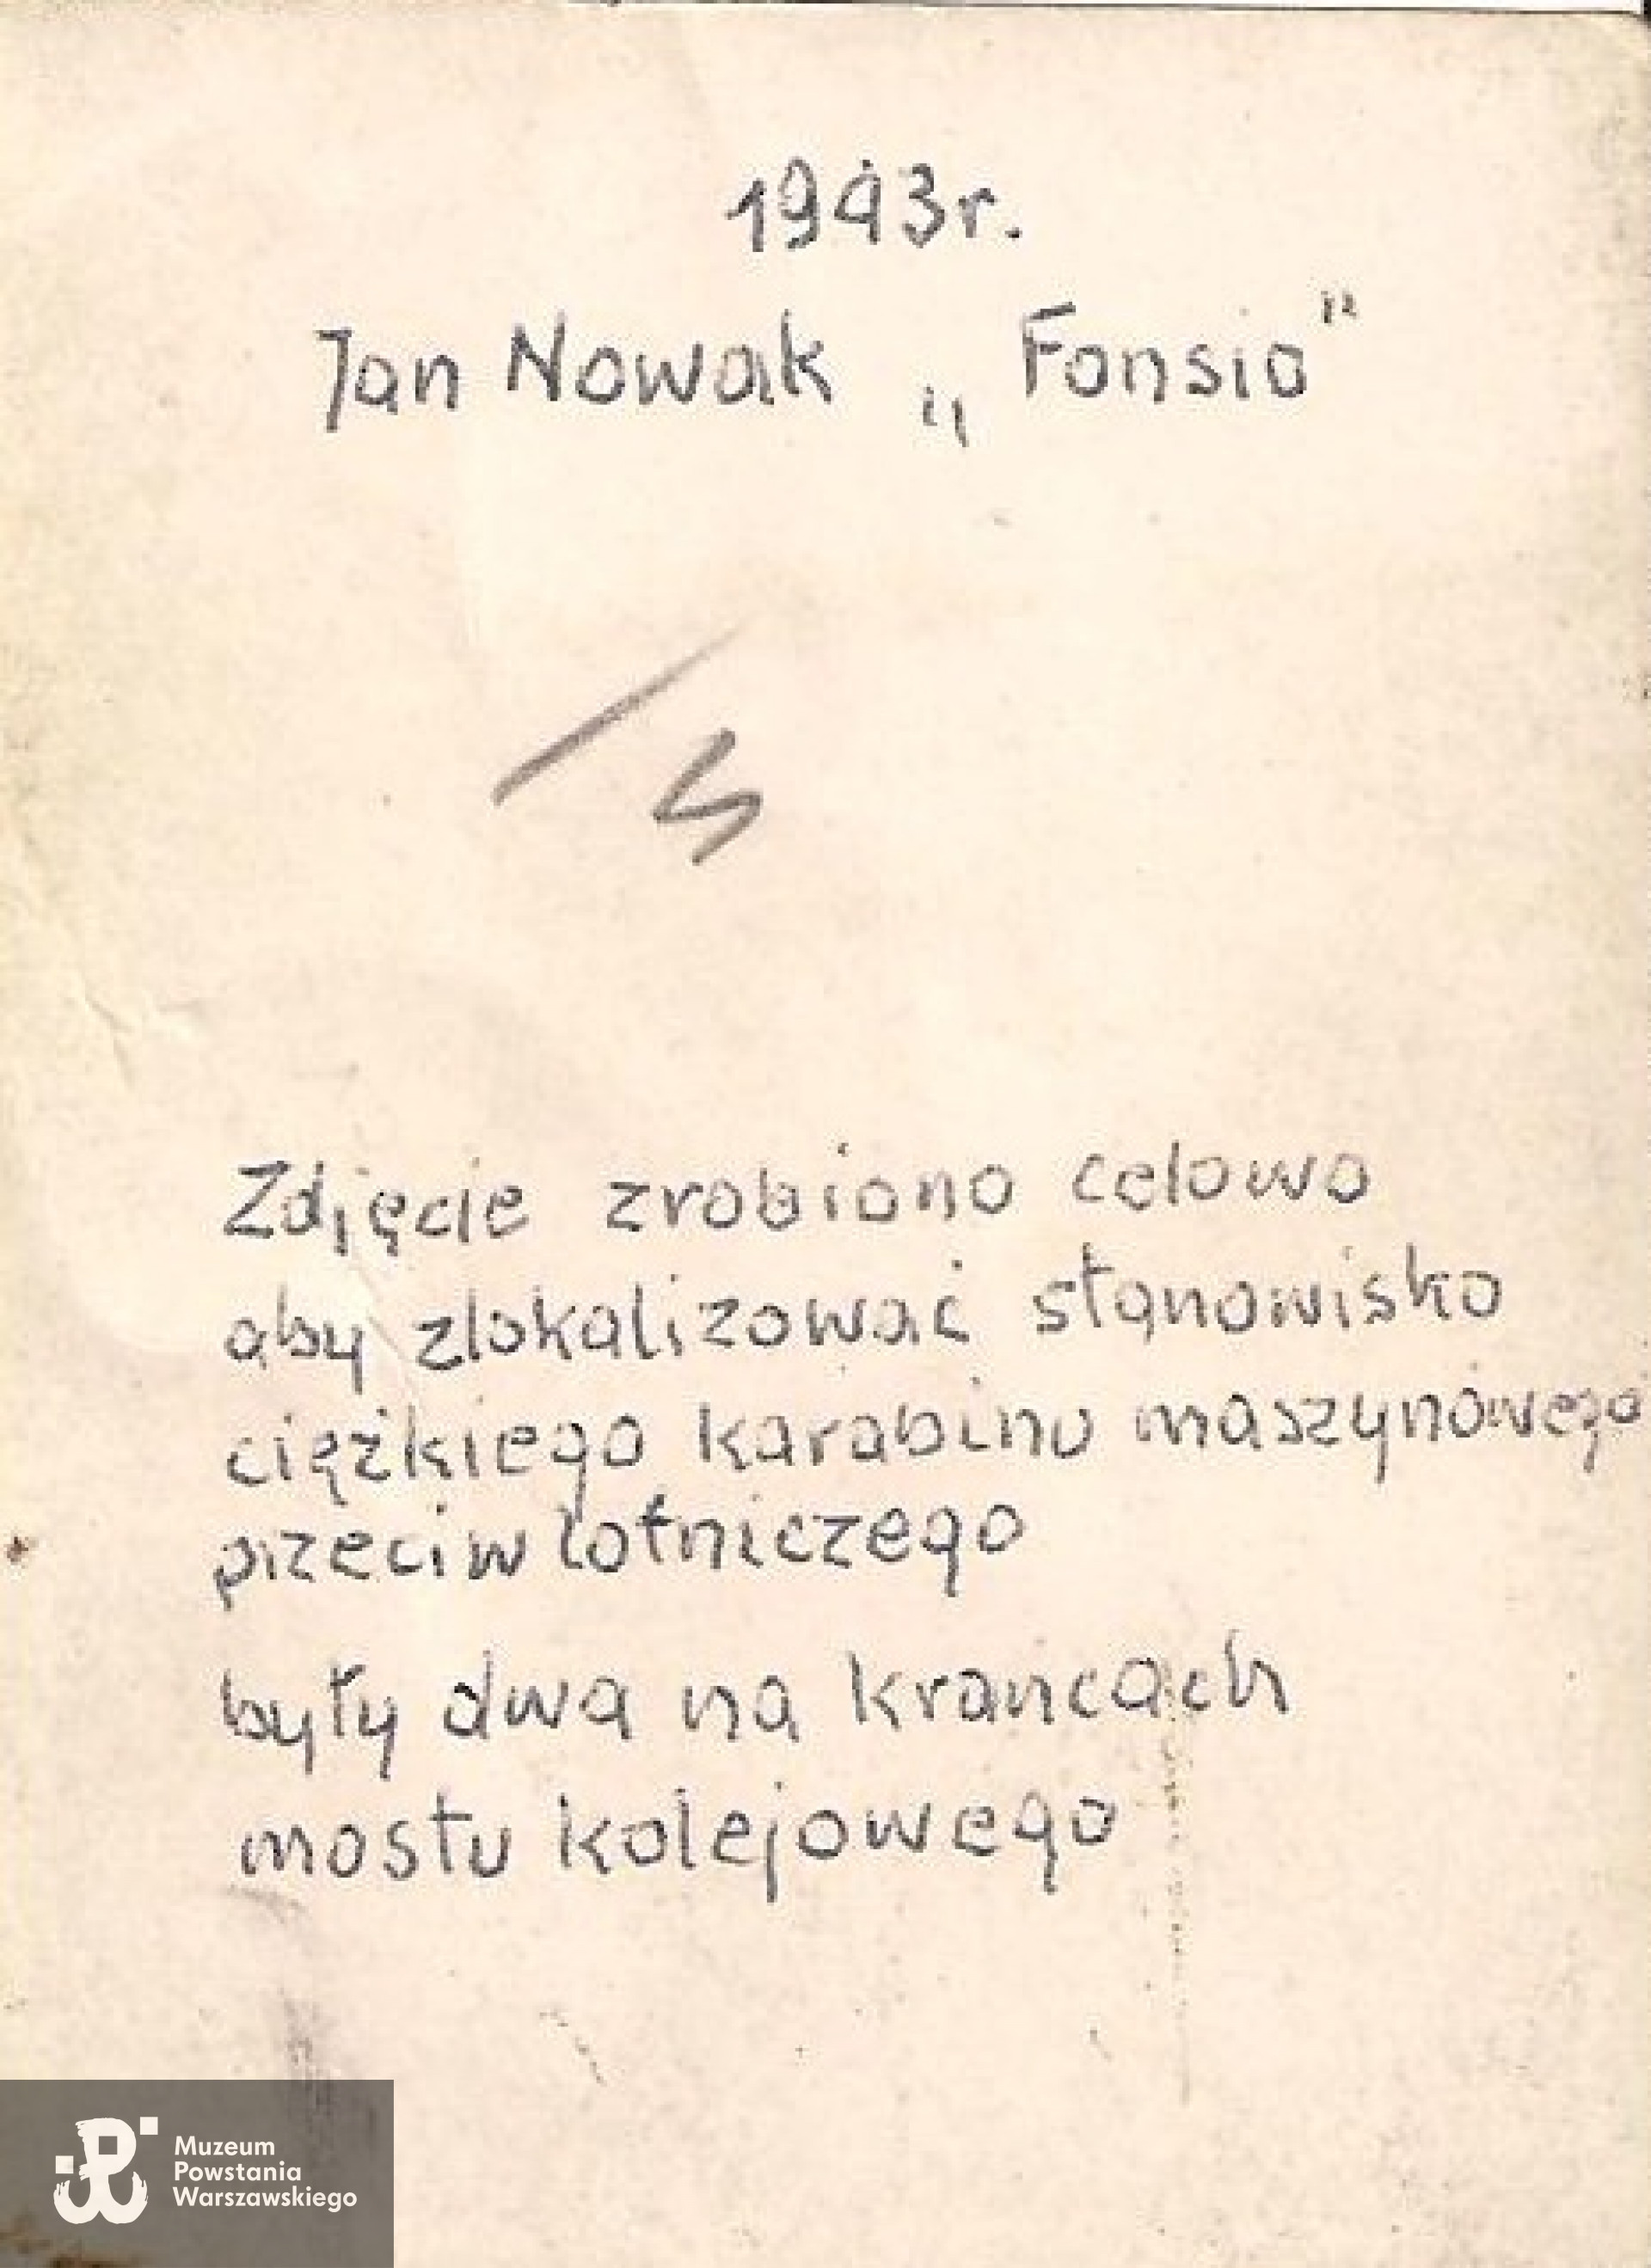 1943r.
Jan Nowak „Fonsio"
Zdjęcie zrobiono celowo
aby zlokalizować stanowisko
ciężkiego karabinu maszynowego
przeciwlotniczego
były dwa na krancach
mostu kolejowego
Muzeum
Powstania
Warszawskiego